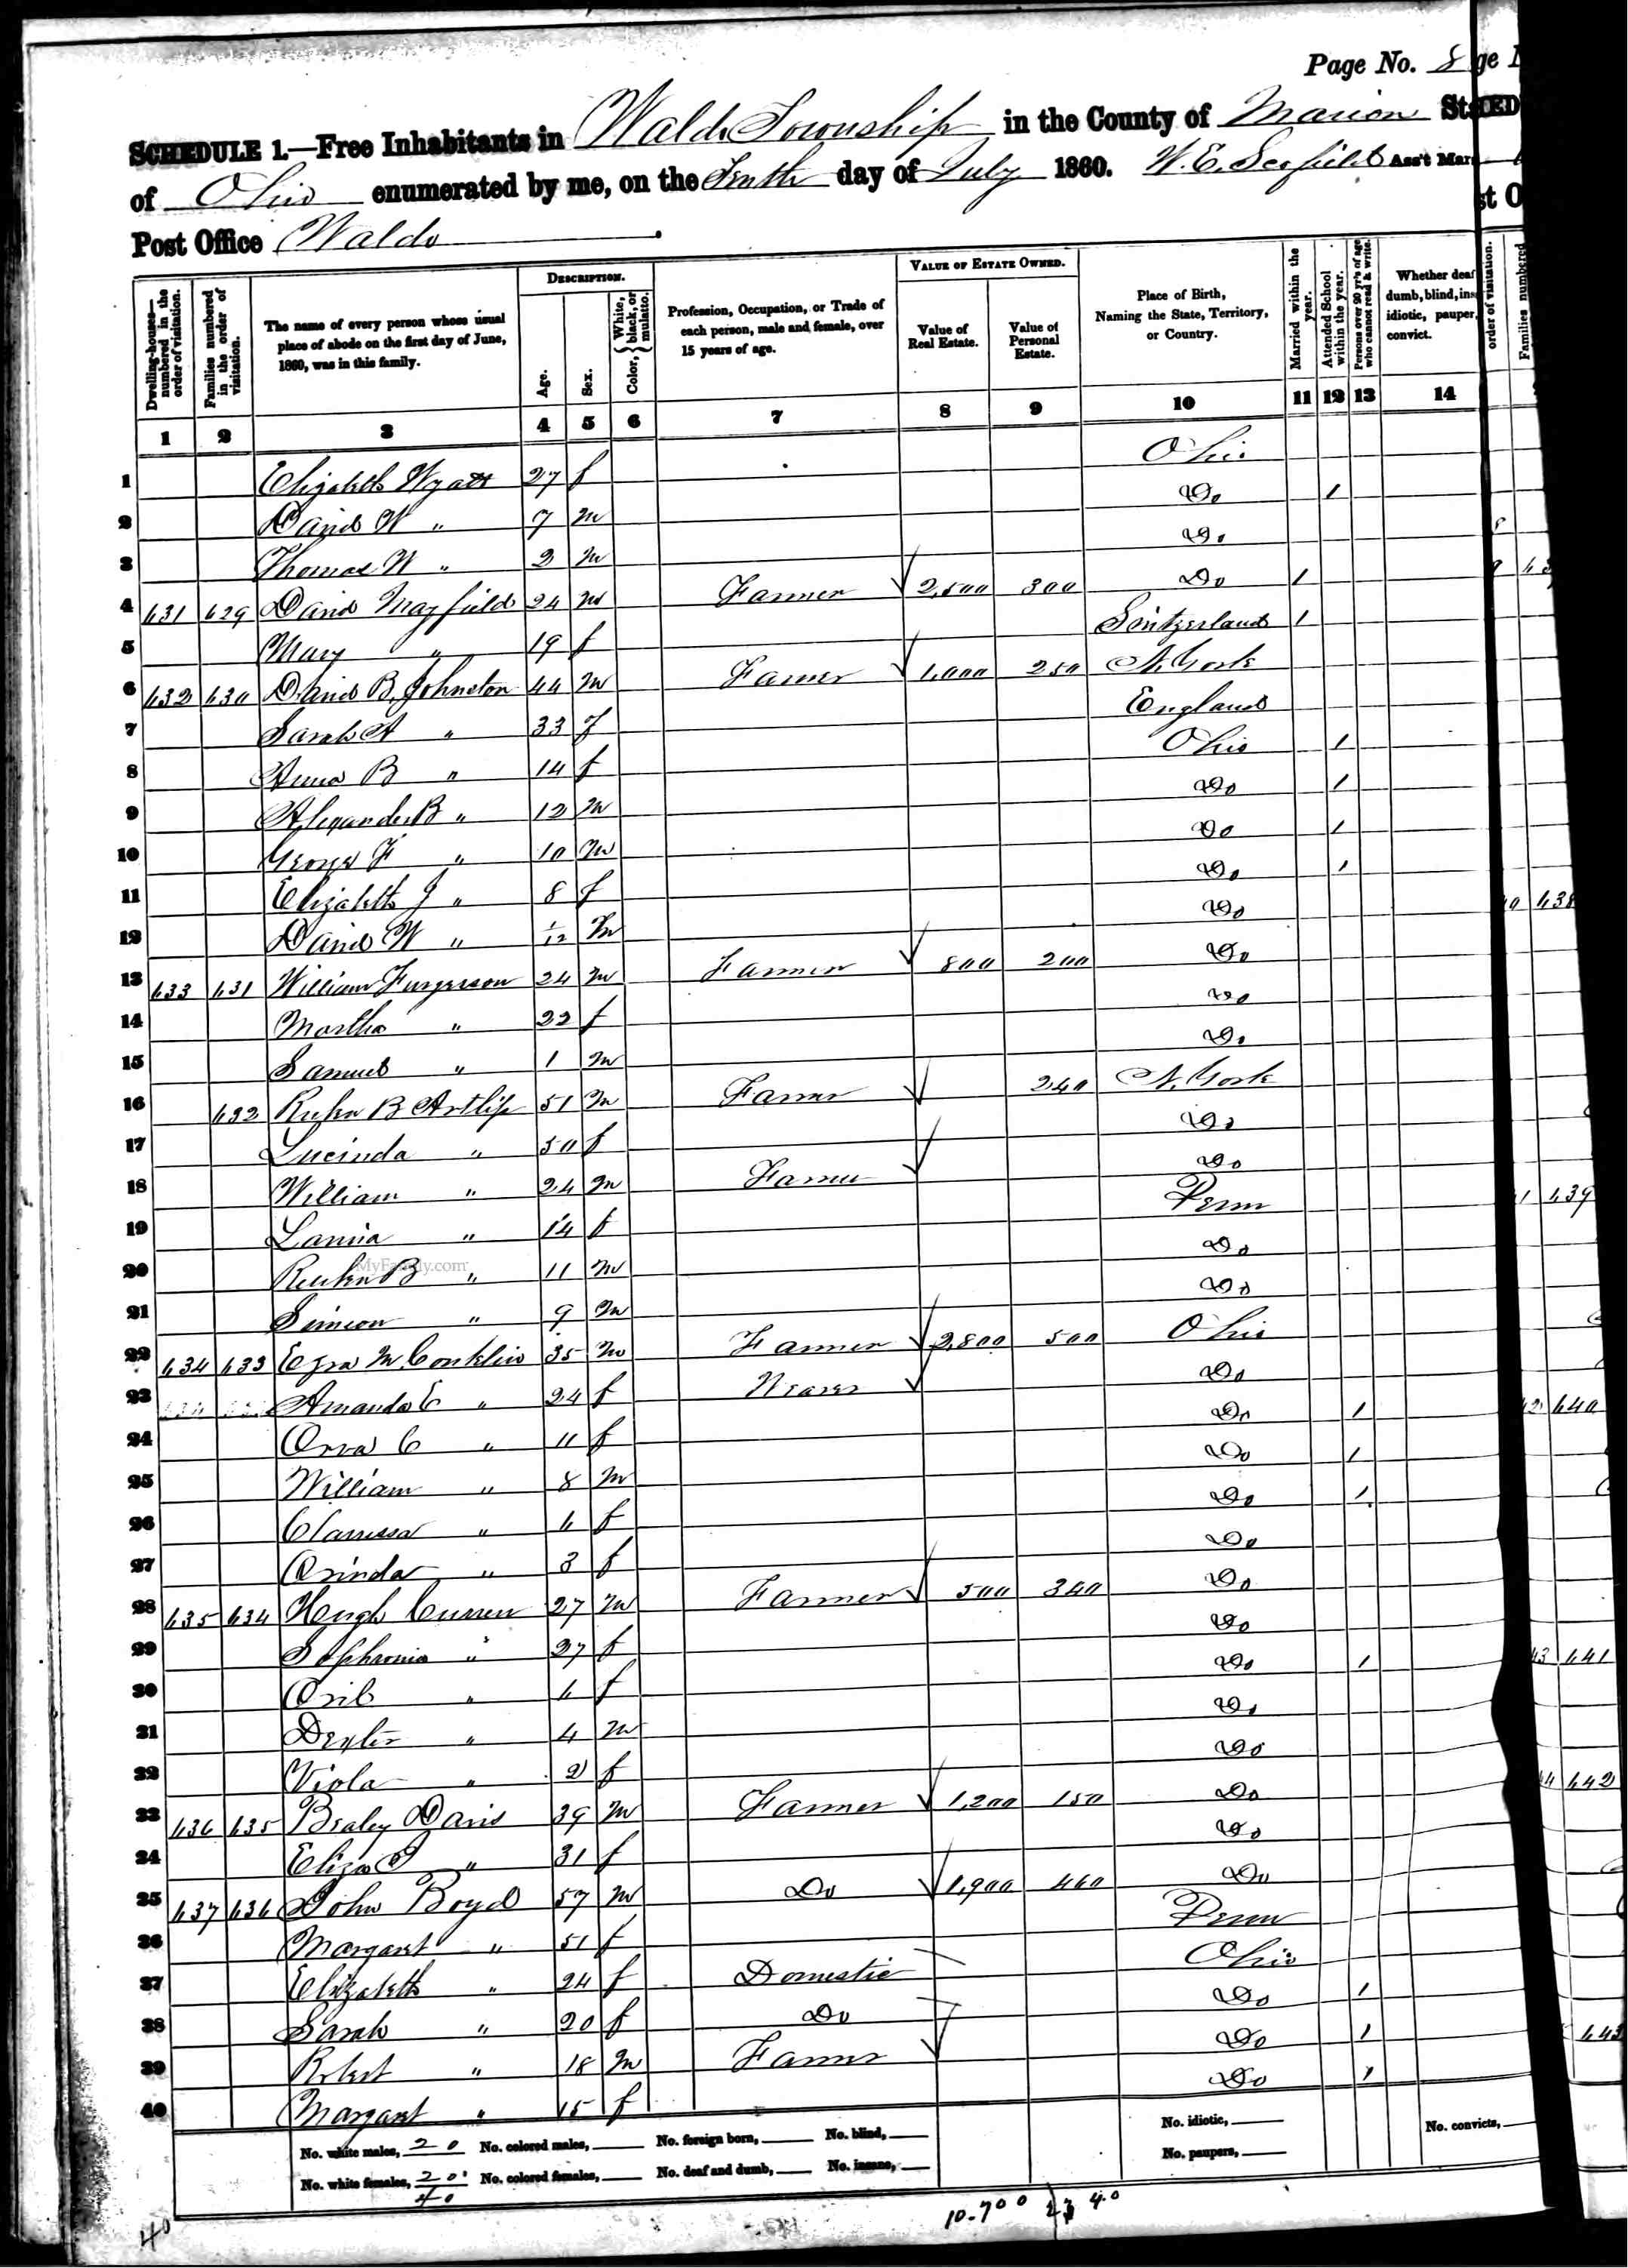 Page No. 8
SCHEDULE 1.—Free Inhabitants in Waldo Township in the County of Marion
of Ohio enumerated by me, on the Tenth day of July 1860. W. E. Ass't Mar
Post Office Waldo
DESCRIPTION. VALUE OF ESTATE OWNED.
Dwelling-houses—numbered in the order of visitation. Families numbered in the order of visitation. The name of every person whose usual place of abode on the first day of June, 1860, was in this family. Age. Sex. Color, White, black, or mulatto. Profession, Occupation, or Trade of each person, male and female, over 15 years of age. Value of Real Estate. Value of Personal Estate. Place of Birth, Naming the State, Territory, or Country. Married within the year. Attended School within the year. Persons over 20 yr's of age who cannot read & write. Whether deaf dumb, blind, ins idiotic, pauper, convict.
1 2 3 4 5 6 7 8 9 10 11 12 13 14
1 Elizabeth Wyatt 27 f Ohio
2 David W " 7 m Do 1
3 Thomas W " 2 m Do
4 631 629 David Mayfield 24 m Farmer 2,500 300 Do 1
5 Mary " 19 f Switzerland 1
6 632 630 David B. Johnston 44 m Farmer 1,000 250 N. York
7 Sarah A " 33 f England
8 Anna B " 14 f Ohio 1
9 Alexander B " 12 m Do 1
10 George F " 10 m Do 1
11 Elizabeth J " 8 f Do 1
12 David W " 1/12 m Do
13 633 631 William Furgerson 24 m Farmer 800 200 Do
14 Martha " 22 f Do
15 Samuel " 1 m Do
16 632 Ruben B Artlip 51 m Farmer 240 N. York
17 Lucinda " 50 f Do
18 William " 24 m Farmer Do
19 " 14 f Penn
20 Reuben B " 11 m Do
21 Simeon " 9 m Do
22 634 633 Ezra M. Conklin 35 m Farmer 2,800 500 Ohio
23 Amanda E " 24 f Weaver Do
24 Orra C " 11 f Do 1
25 William " 8 m Do 1
26 Clarissa " 6 f Do 1
27 Orinda " 3 f Do
28 635 634 Hugh Curren 27 m Farmer 500 340 Do
29 Sophronia " 27 f Do
30 " 6 f Do 1
31 Dexter " 4 m Do
32 Viola " 2 f Do
33 636 635 Davis 39 m Farmer 1,200 150 Do
34 Eliza J " 31 f Do
35 637 636 John Boyd 57 m Do 1,900 460 Do
36 Margaret " 51 f Penn
37 Elizabeth " 24 f Domestic Ohio
38 Sarah " 20 f Do Do 1
39 Robert " 18 m Farmer Do 1
40 Margaret " 15 f Do 1
No. white males, 20 No. colored males, No. foreign born, No. blind, No. idiotic, No. convicts,
No. white females, 20 No. colored females, No. deaf and dumb, No. insane, No. paupers,
40
10.700 2340
40
order of visitation. Families numbered
638
639
640
641
642
643
MyFamily.com